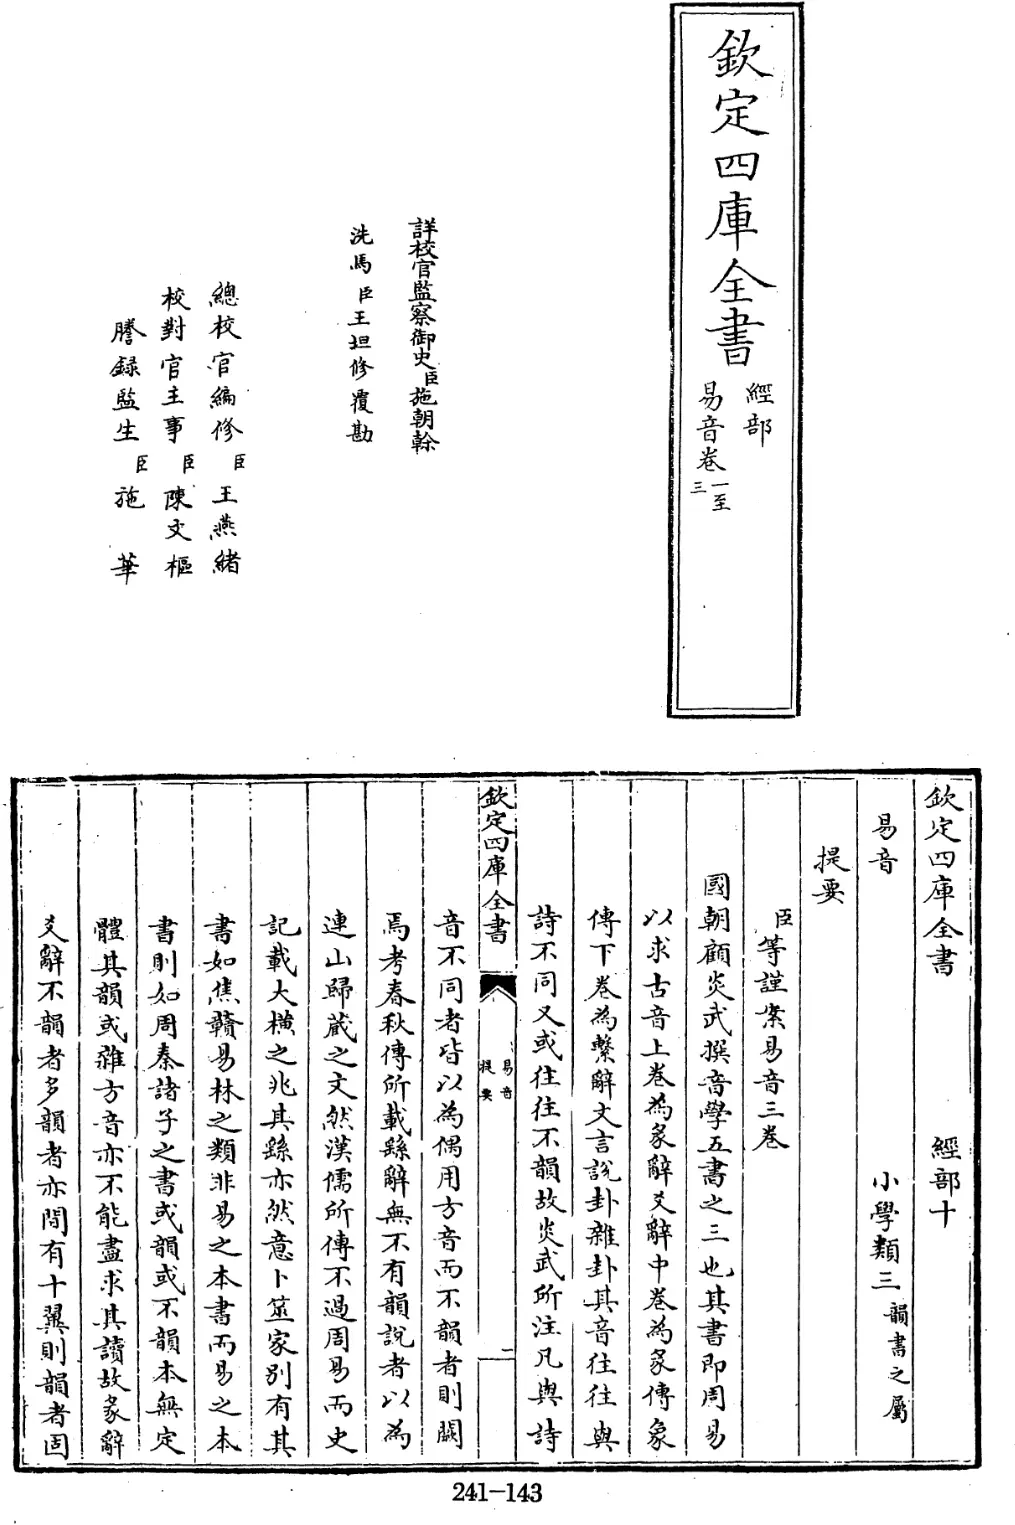 欽定四庫全書
經部
易音卷一至三
詳校官監察御史臣施朝幹
洗馬臣王坦修覆勘
總校官編修臣王燕緒
校對官主事臣陳文樞
謄録監生臣施華
欽定四庫全書 經部十
易音 小學類三韻書之屬
提要
臣等謹案易音三卷
國朝顧炎武撰音學五書之三也其書即周易
以求古音上卷為彖辭爻辭中卷為彖傳象
傳下卷為繫辭文言説卦雜卦其音往往與
詩不同又或往往不韻故炎武所注凡與詩
欽定四庫全書
易音
提要
二
音不同者皆以為偶用方音而不韻者則闕
焉考春秋傳所載繇辭無不有韻説者以為
連山歸蔵之文然漢儒所傳不過周易而史
記載大横之兆其繇亦然意卜筮家别有其
書如焦贛易林之類非易之本書而易之本
書則如周秦諸子之書或韻或不韻本無定
體其韻或雜方音亦不能盡求其讀故彖辭
爻辭不韻者多韻者亦間有十翼則韻者固
241-143